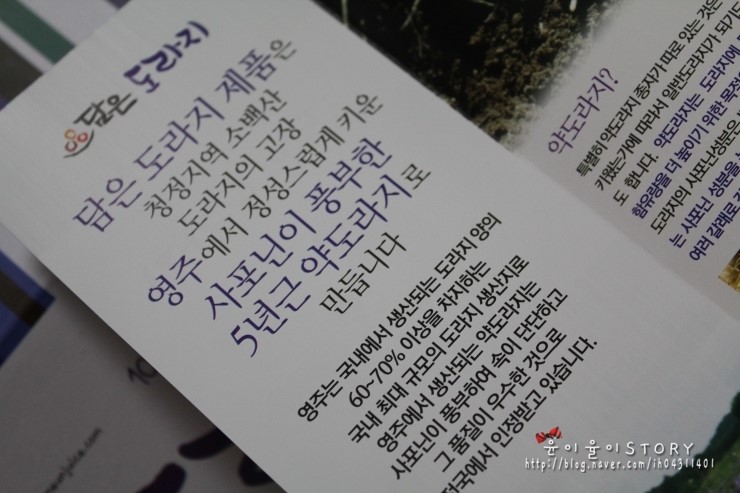 담은 도라지
담은 도라지 제품은
청정지역 소백산
도라지의 고장
영주에서 정성스럽게 키운
사포닌이 풍부한
5년근 약도라지로
만듭니다
영주는 국내에서 생산되는 도라지 양의
60~70% 이상을 차지하는
국내 최대 규모의 도라지 생산지로
영주에서 생산되는 약도라지는
사포닌이 풍부하여 속이 단단하고
그 품질이 우수한 것으로
전국에서 인정받고 있습니다.
약도라지?
특별히 약도라지 종자가 따로 있는 것은
키웠는가에 따라서 일반도라지가 되기도
도 합니다. 약도라지는 도라지에
함유량을 더 높이기 위한 목적
도라지의 사포닌성분은
는 사포닌 성분을
여러 갈래로
10
윤이율이STORY
http://blog.naver.com/ih04311401